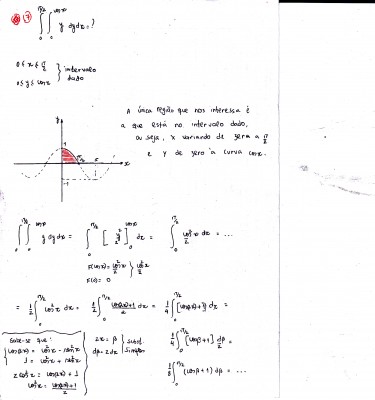 7) ∫₀^{π/2} ∫₀^{cos x} y dy dx = ?
0 ≤ x ≤ π/2 } intervalo
0 ≤ y ≤ cos x } dado
A única região que nos interessa é
a que está no intervalo dado,
ou seja, x variando de zero a π/2
e y de zero à curva cos x.
y
1
π/2
π
x
0
-1
∫₀^{π/2} ∫₀^{cos x} y dy dx = ∫₀^{π/2} [y²/2]₀^{cos x} dx = ∫₀^{π/2} cos²x/2 dx = ...
F(cos x) = cos²x/2 } cos²x/2
F(0) = 0
= 1/2 ∫₀^{π/2} cos²x dx = 1/2 ∫₀^{π/2} cos(2x)+1/2 dx = 1/4 ∫₀^{π/2} [cos(2x)+1] dx =
Sabe-se que:
cos(2x) = cos²x - sen²x
1 = cos²x + sen²x
2cos²x = cos(2x) + 1
cos²x = cos(2x)+1/2
2x = β } subst.
dβ = 2dx } Simples
1/4 ∫₀^{π/2} [cos β + 1] dβ/2 =
1/8 ∫₀^{π/2} (cos β + 1) dβ = ...